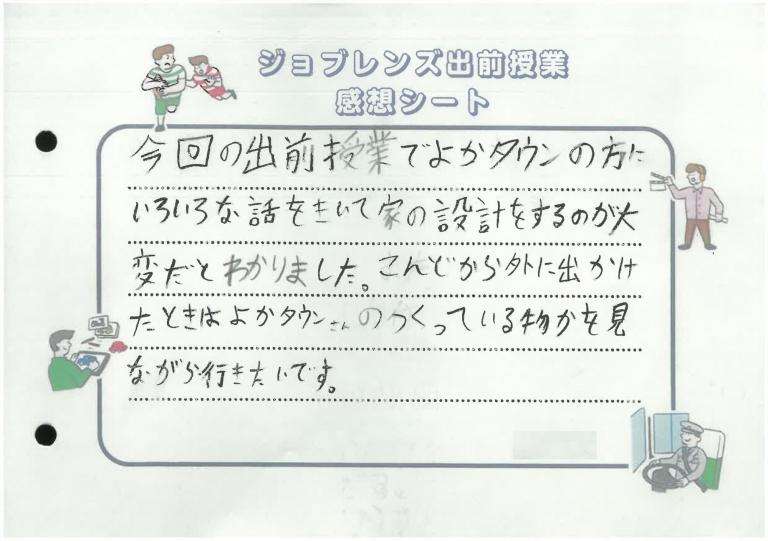 ジョブレンズ出前授業
感想シート
今回の出前授業でよかタウンの方に
いろいろな話をきいて家の設計をするのが大
変だとわかりました。こんどから外に出かけ
たときはよかタウンさんのつくっている物かを見
ながら行きたいです。